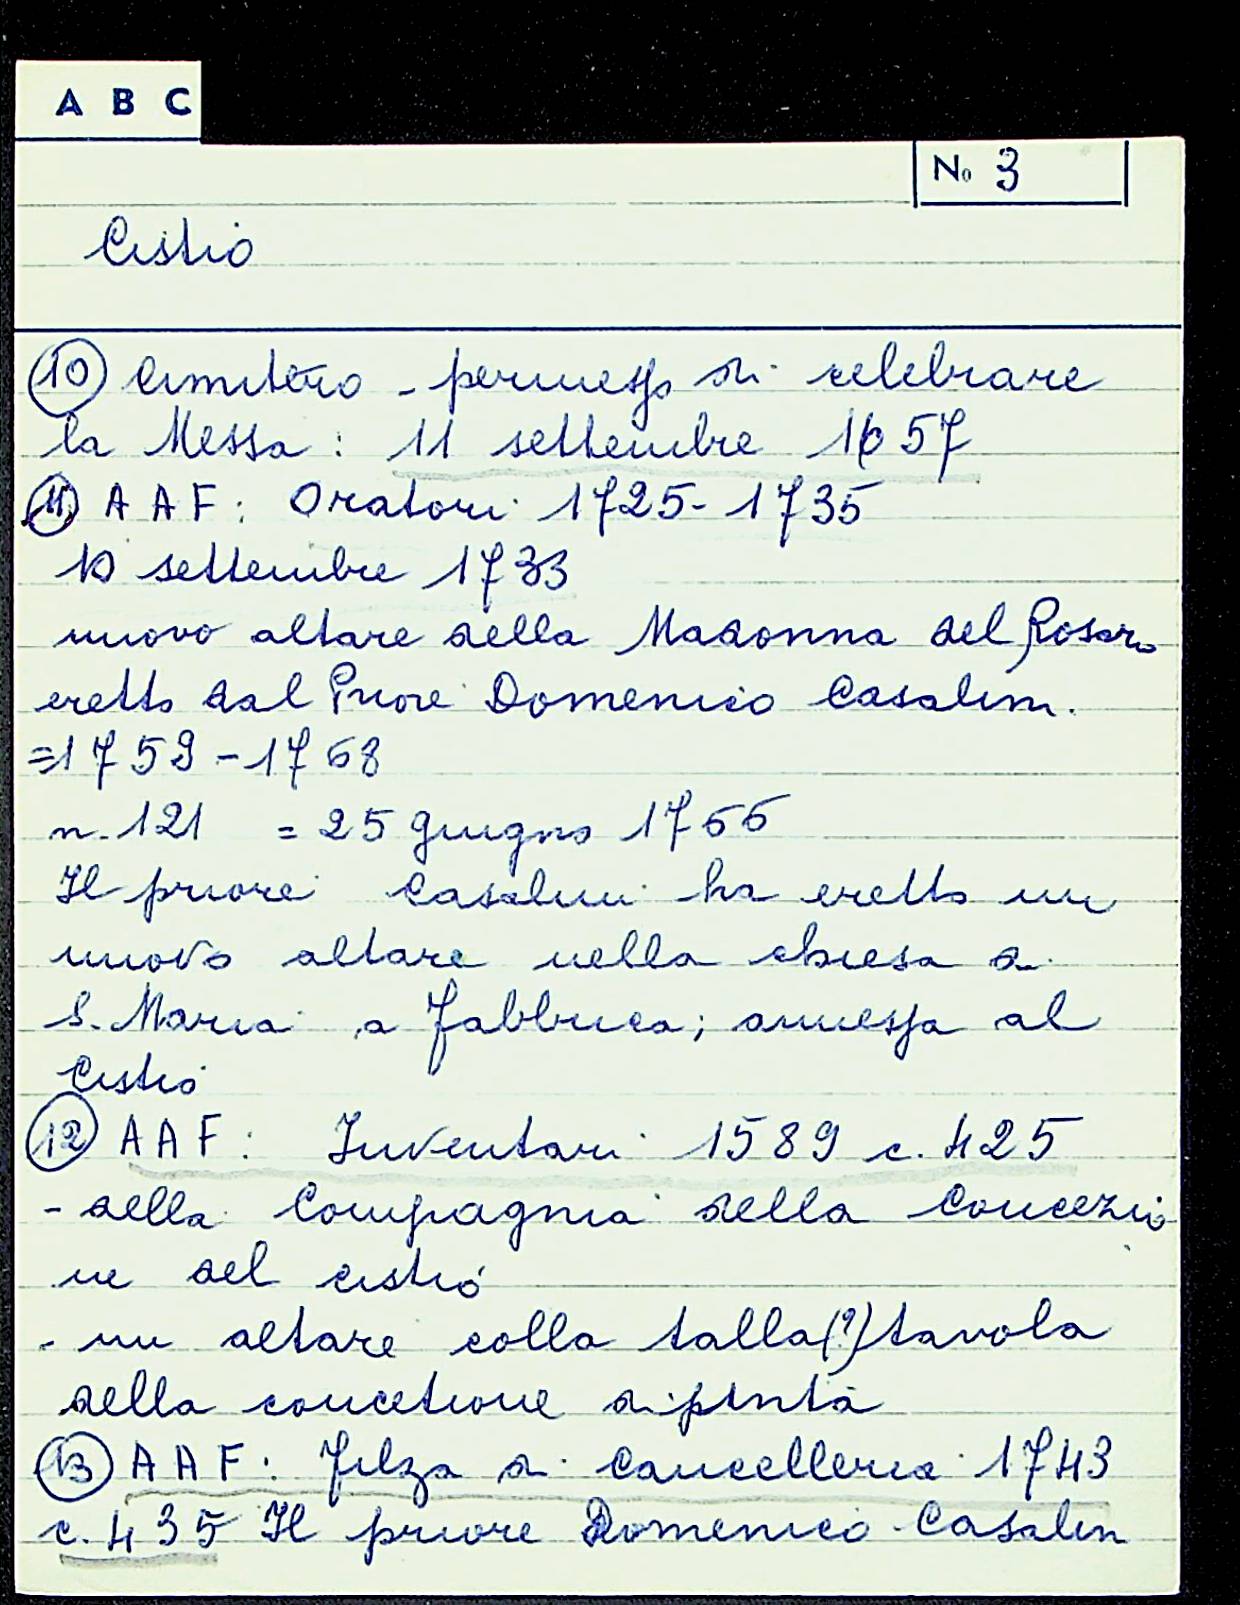 A B C
No 3
Cistio
10 Cimitero - permesso di celebrare
la Messa: 11 settembre 1657
11 A A F: Oratori 1725-1735
10 settembre 1733
nuovo altare della Madonna del Rosario
eretto dal Priore Domenico Casalini.
=1759-1768
n. 121 = 25 giugno 1766
Il priore Casalini ha eretto un
nuovo altare nella chiesa di
S. Maria a Fabbrica; annessa al
Cistio
12 A A F: Inventari 1589 c. 425
- della Compagnia della Concezio
ne del Cistio
- un altare colla talla(?) tavola
della concetione dipinta
13 A A F: Filza di Cancelleria 1743
c. 435 Il priore Domenico Casalin